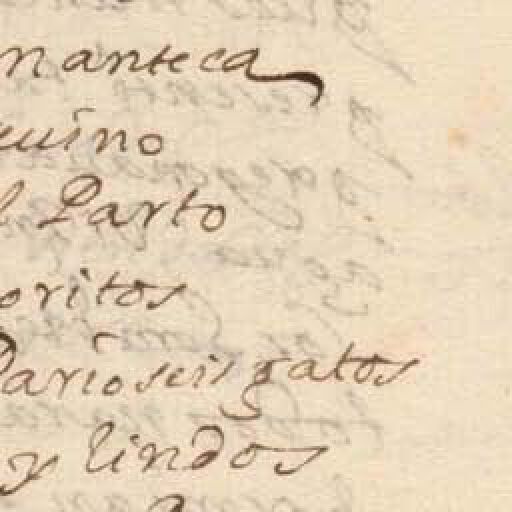 manteca
uino
l Parto
oritos
Pario seis gatos
y lindos